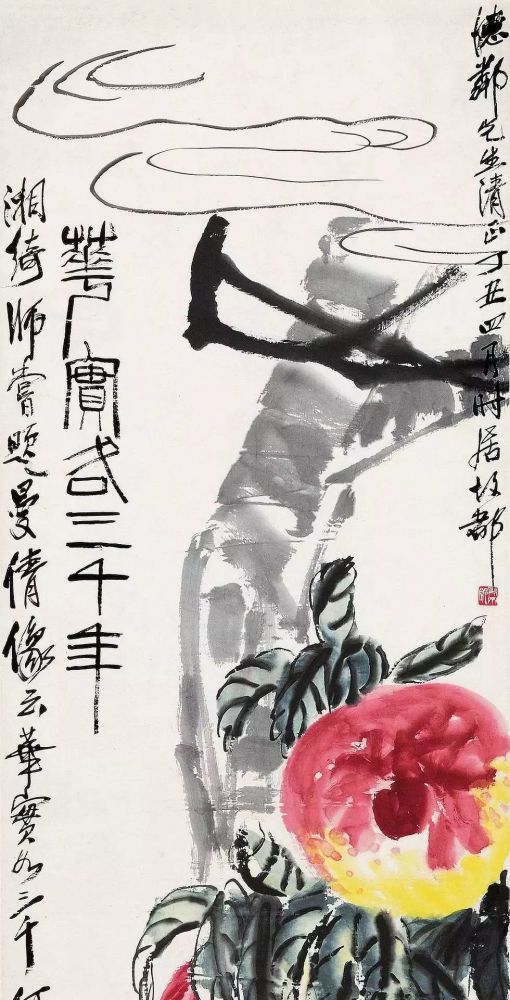 德鄰先生清正丁丑四月时居故都
華實各三千年
湘綺師嘗題曼倩像云華實各三千